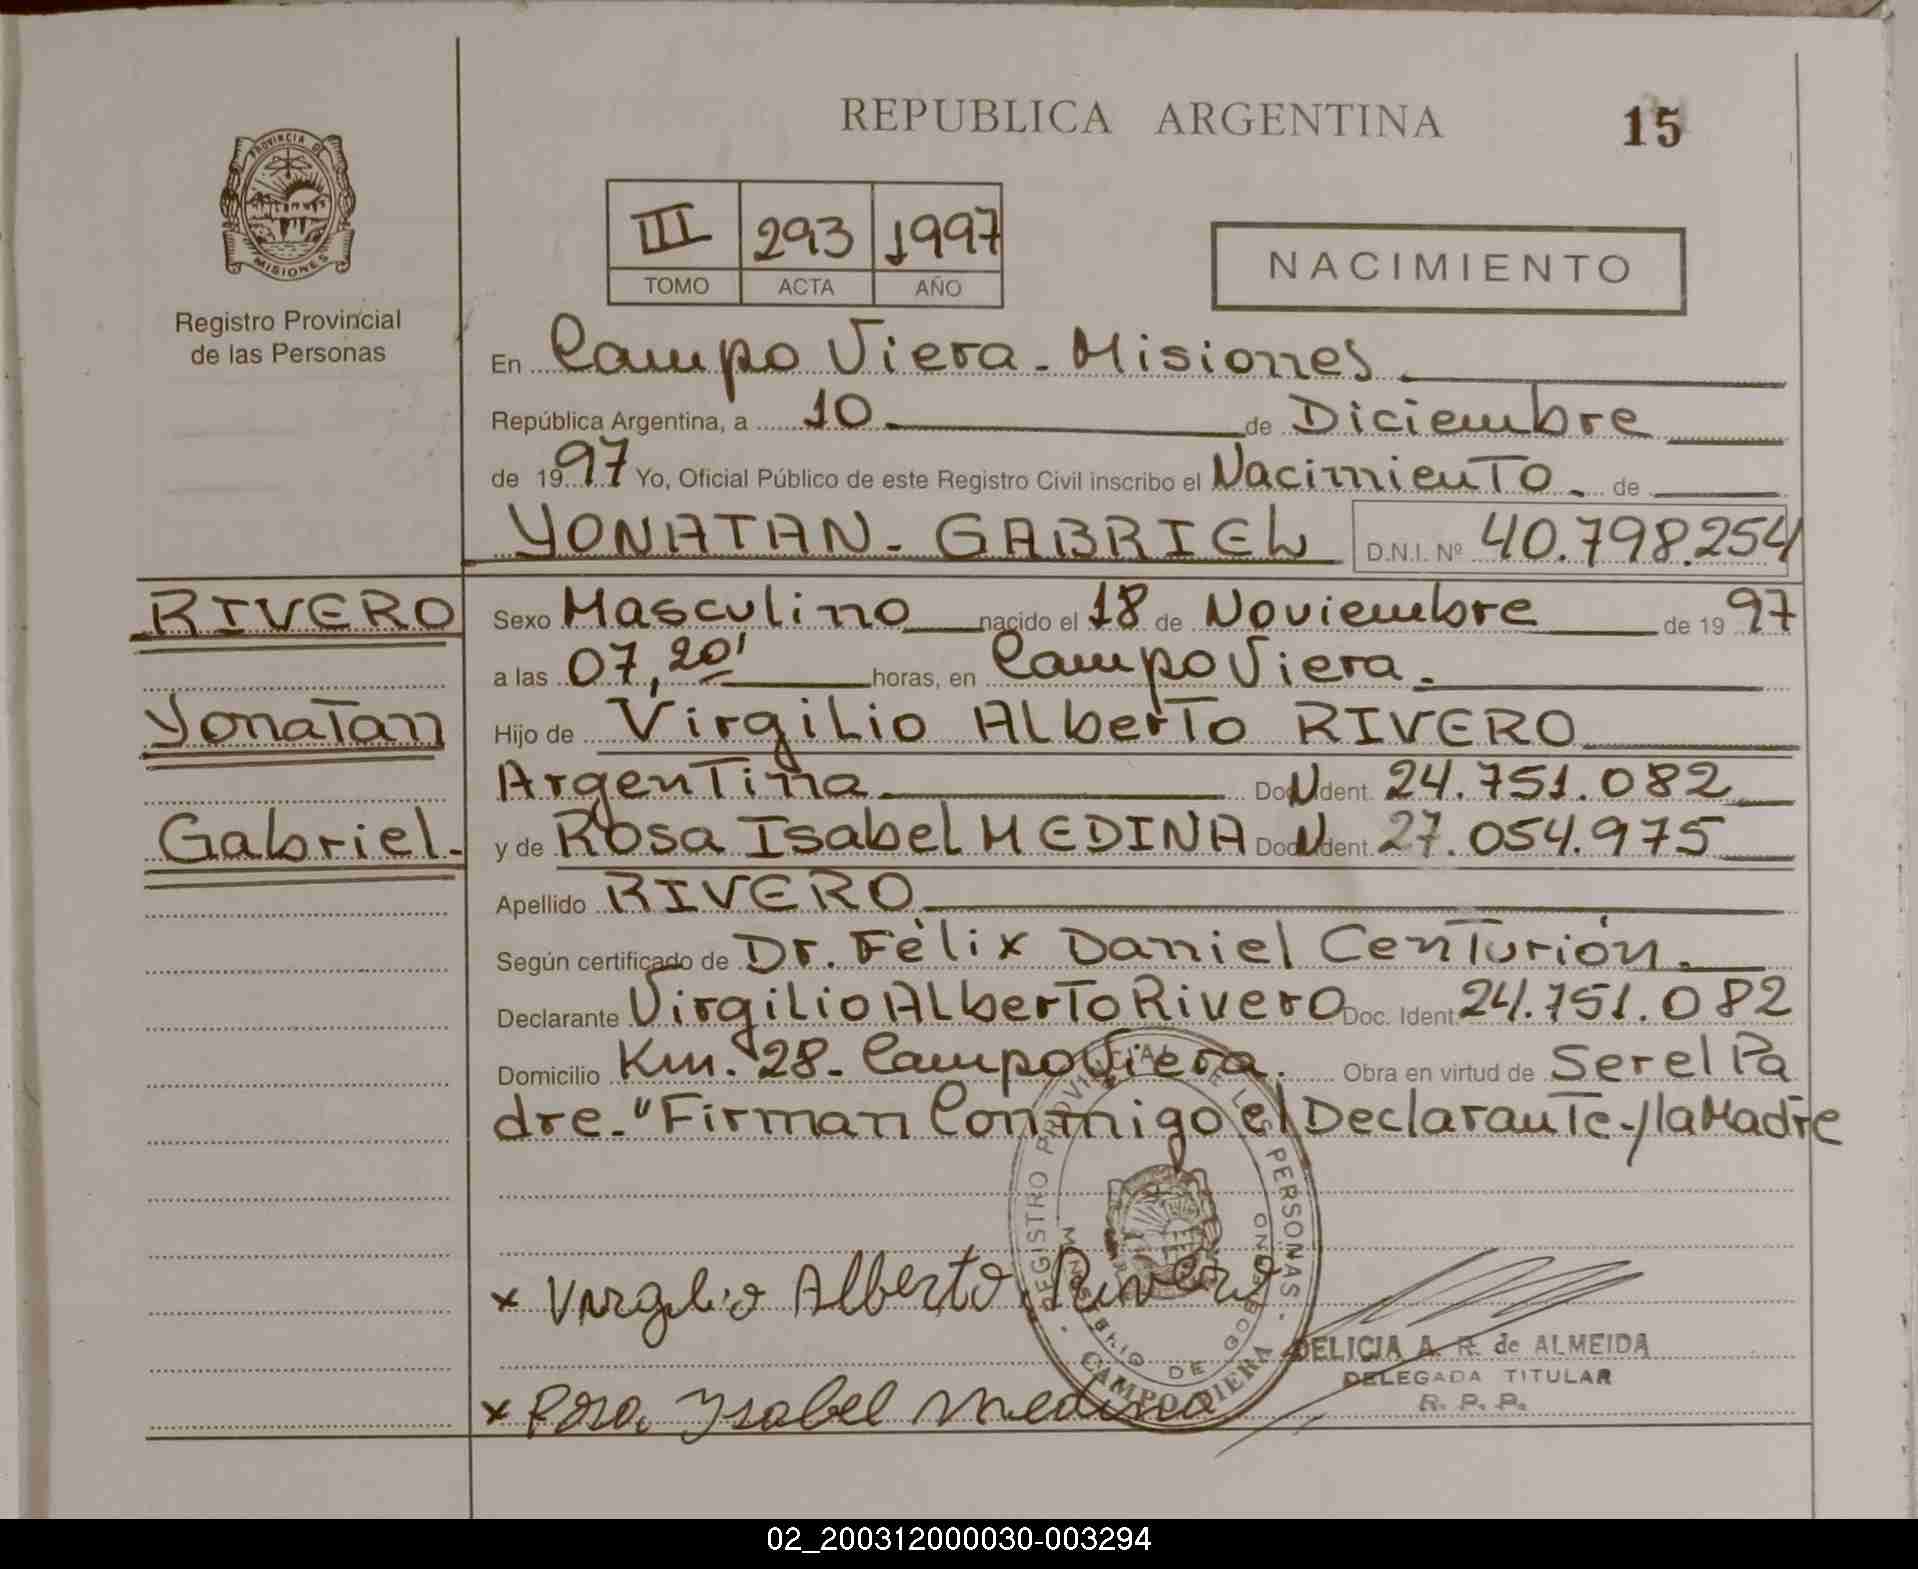 REPUBLICA ARGENTINA
15
PROVINCIA DE
MISIONES
Registro Provincial
de las Personas
III 293 1997
TOMO ACTA AÑO
NACIMIENTO
En Campo Viera - Misiones
República Argentina, a 10 de Diciembre
de 1997 Yo, Oficial Público de este Registro Civil inscribo el Nacimiento. de
YONATAN - GABRIEL D.N.I. Nº 40.798.254
RIVERO
Yonatan
Gabriel.-
Sexo Masculino nacido el 18 de Noviembre de 1997
a las 07,20' horas, en Campo Viera.
Hijo de Virgilio Alberto RIVERO
Argentina Doc. Ident. 24.751.082
y de Rosa Isabel MEDINA Doc. Ident. 27.054.975
Apellido RIVERO
Según certificado de Dr. Félix Daniel Centurión.
Declarante Virgilio Alberto Rivero Doc. Ident. 24.751.082
Domicilio Km. 28 - Campo Viera. Obra en virtud de Ser el Pa
dre. "Firman Conmigo el Declarante-/la Madre
x Virgilio Alberto Rivero
x Rosa Ysabel Medina
REGISTRO PROVINCIAL DE LAS PERSONAS
MINISTERIO DE GOBIERNO
- CAMPO VIERA -
DELICIA A. R. de ALMEIDA
DELEGADA TITULAR
R. P. P.
02_200312000030-003294